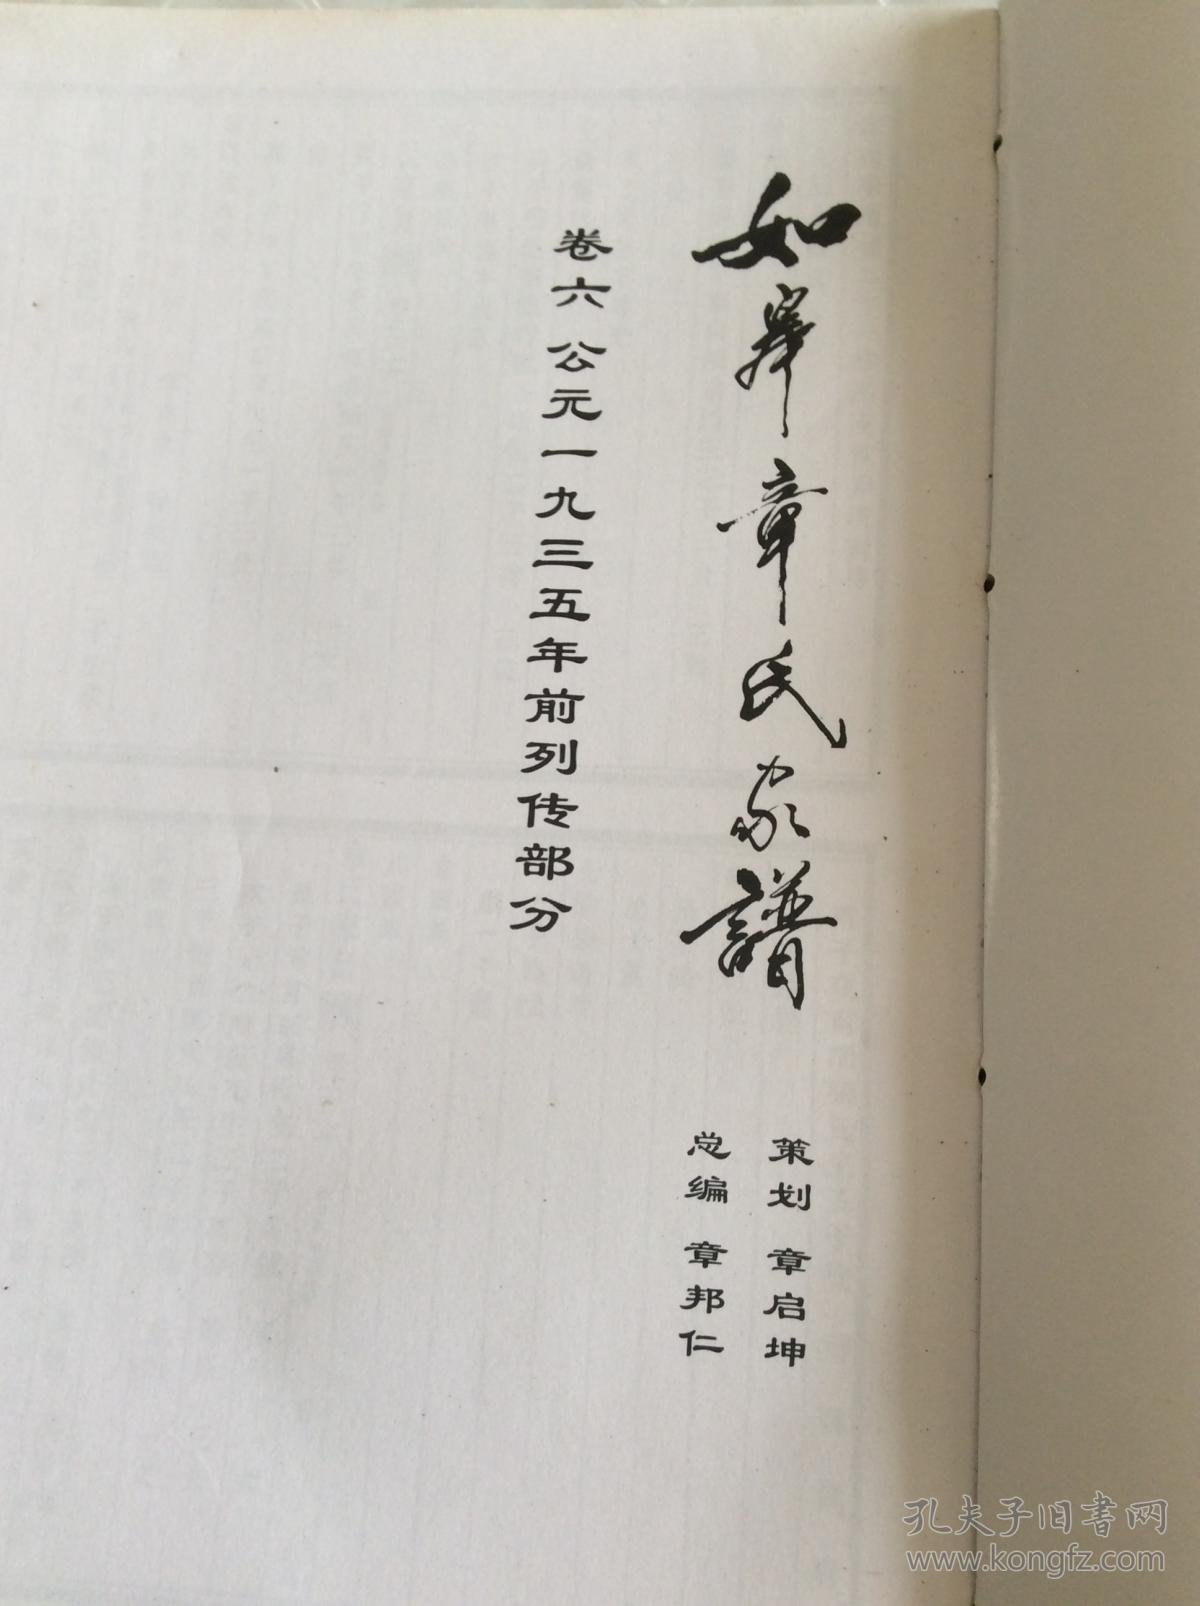 如皋章氏家譜
策划 章启坤
总编 章邦仁
卷六 公元一九三五年前列传部分
孔夫子旧书网
www.kongfz.com